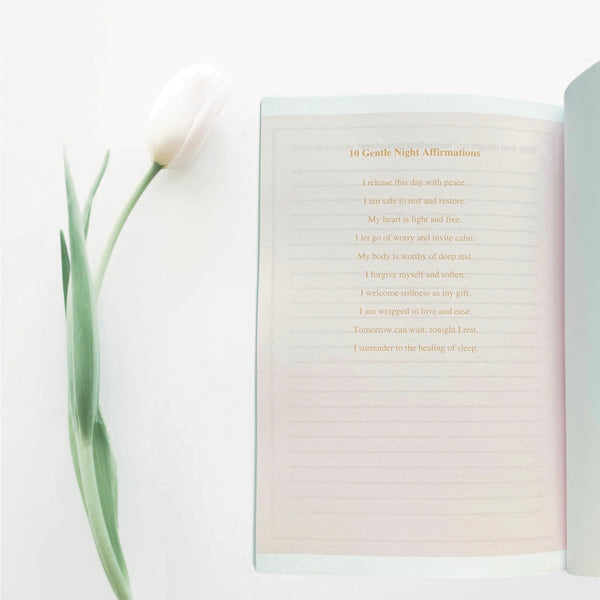 10 Gentle Night Affirmations
I release this day with peace.
I am safe to rest and restore.
My heart is light and free.
I let go of worry and invite calm.
My body is worthy of deep rest.
I forgive myself and soften.
I welcome stillness as my gift.
I am wrapped in love and ease.
Tomorrow can wait; tonight I rest.
I surrender to the healing of sleep.